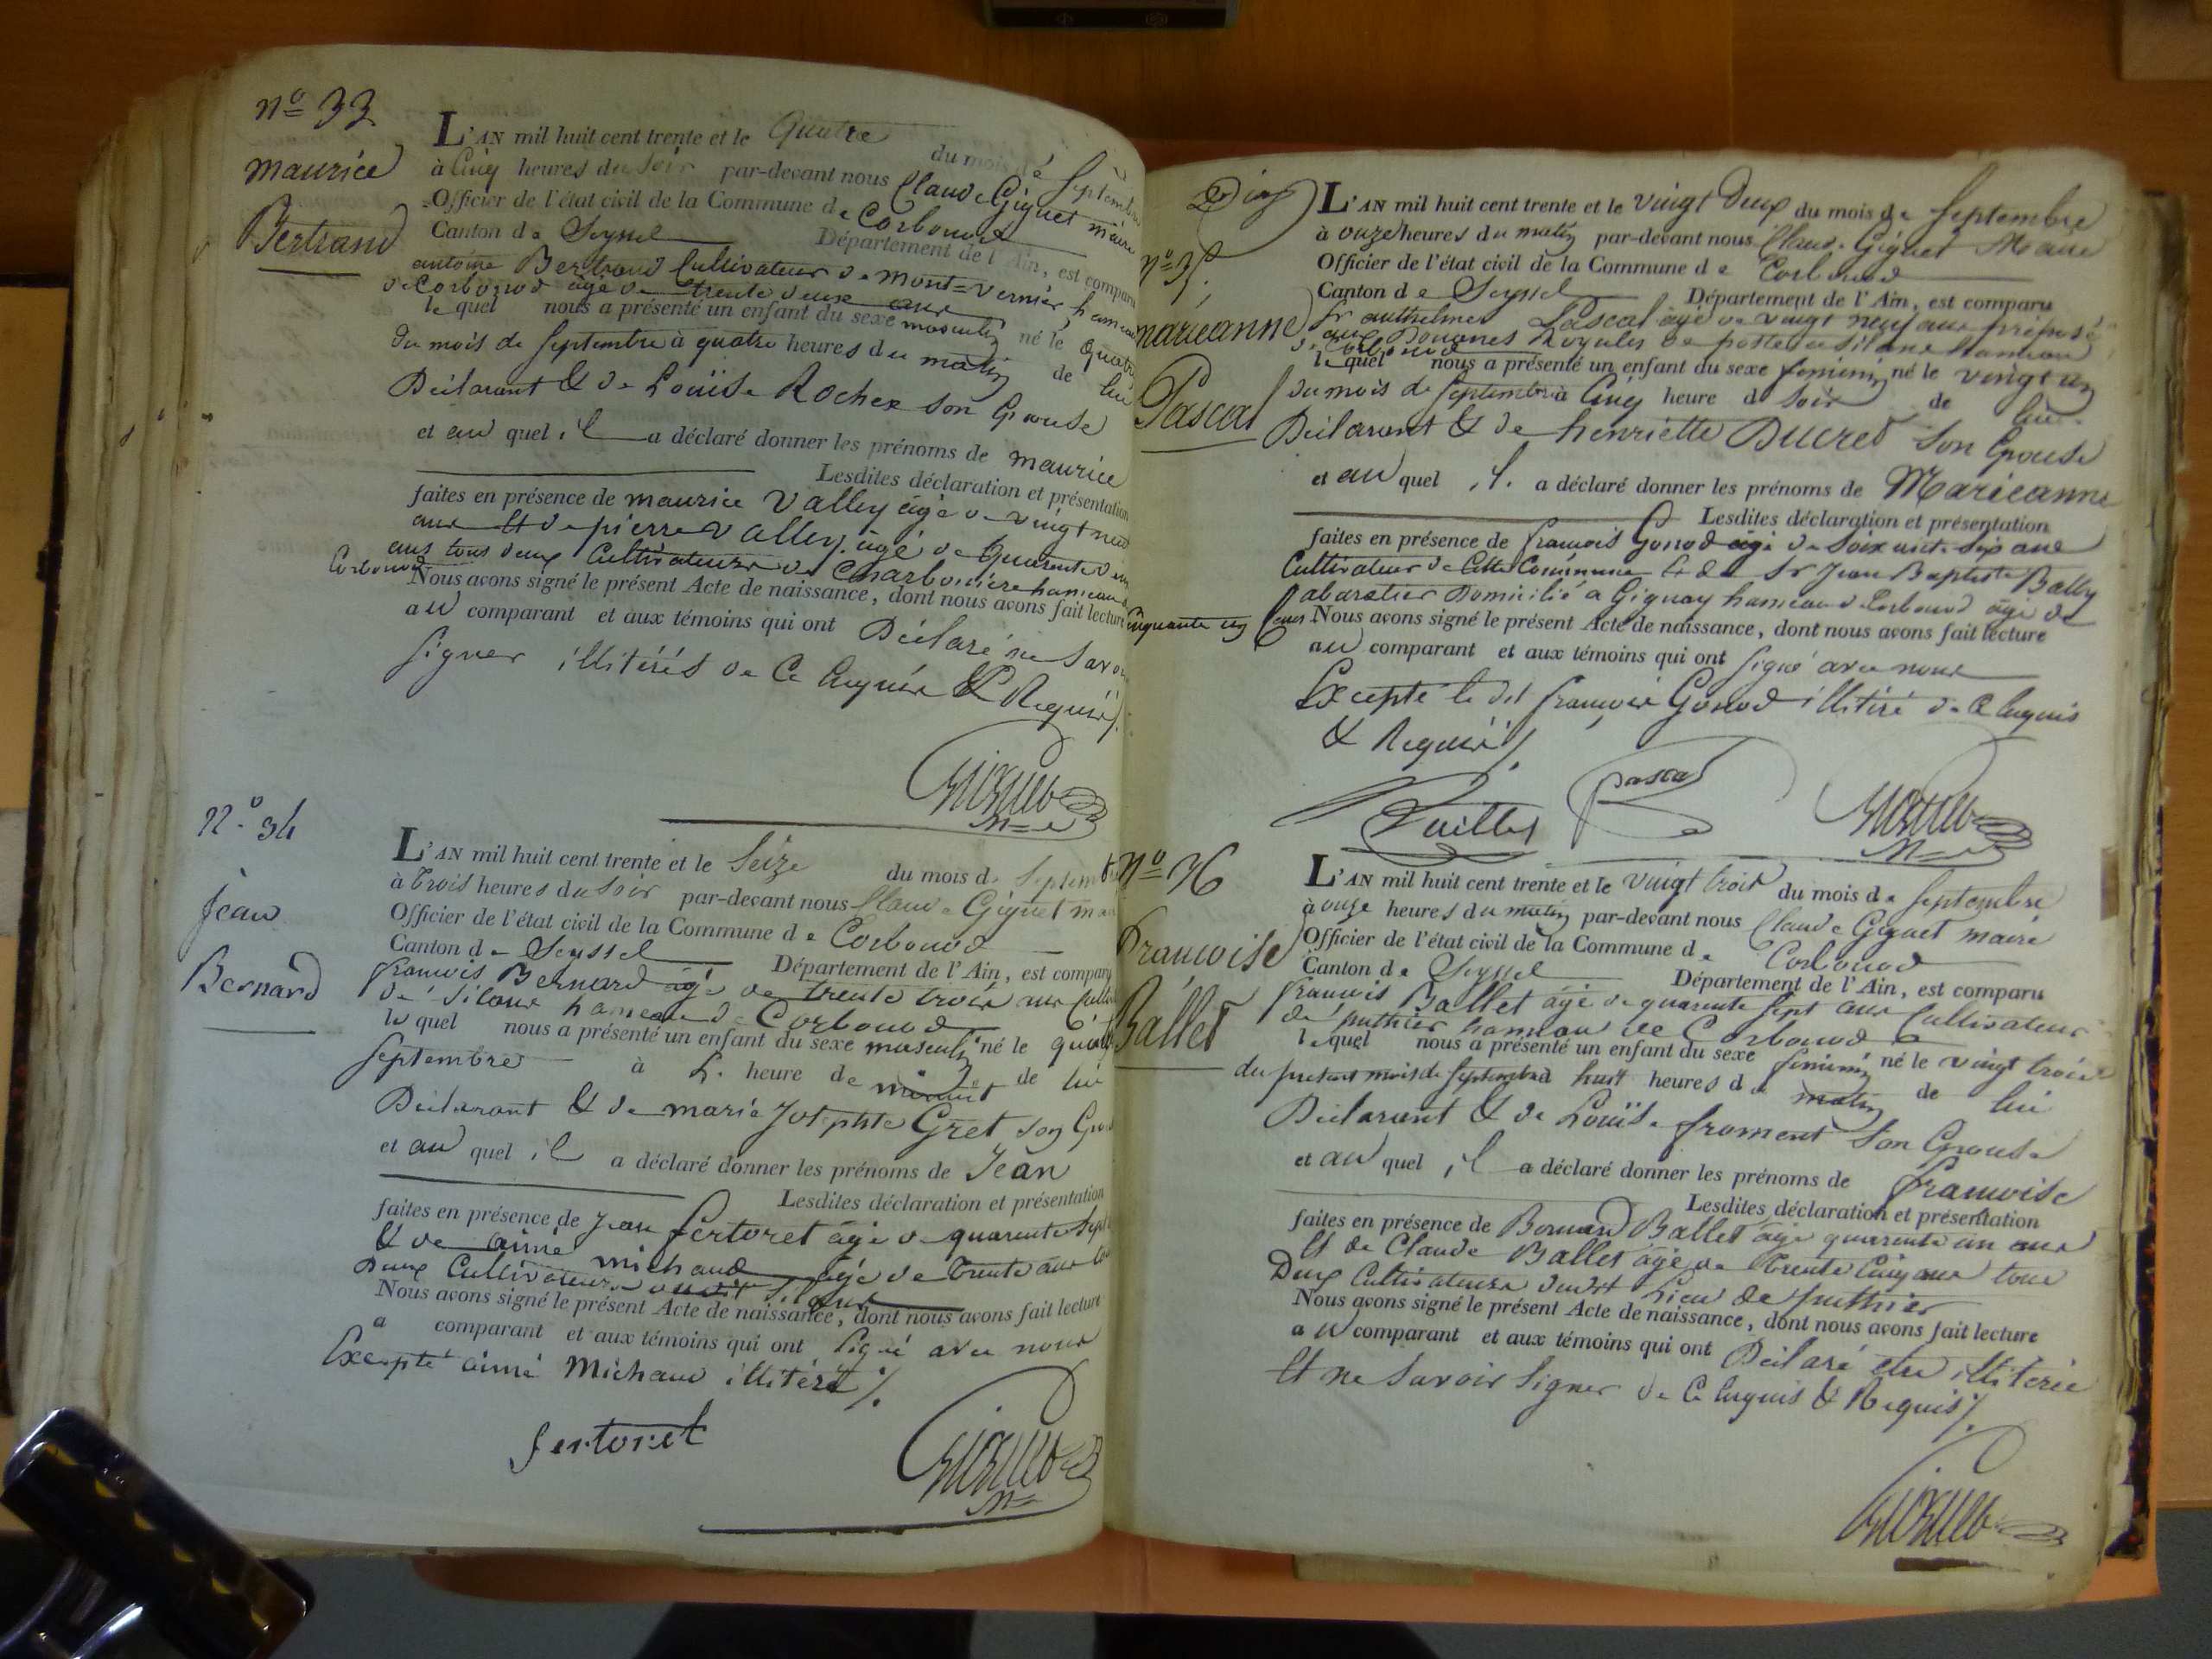 nº 33
maurice
Bertrand
L'AN mil huit cent trente et le Quatre du mois de Septembre
à Cinq heures du Soir par-devant nous Claude Giguet maire
Officier de l'état civil de la Commune de Corbonod
Canton de Seyssel Département de l'Ain, est comparu
antoine Bertrand Cultivateur de mont=vernier hameau
de Corbonod âgé de trente deux ans
le quel nous a présenté un enfant du sexe masculin né le quatre
du mois de Septembre à quatre heures du matin de lui
Déclarant & de Louïse Rochex son Epouse
et au quel il a déclaré donner les prénoms de maurice
Lesdites déclaration et présentation
faites en présence de maurice Valley âgé de vingt neuf
ans et de pierre Valley âgé de Quarente deux
ans tous deux Cultivateurs de Charbonière hameau
Corbonod
Nous avons signé le présent Acte de naissance, dont nous avons fait lecture
au comparant et aux témoins qui ont Déclaré ne Savoir
Signer illitérés de Ce Enquis & Requis/.
nº 34
jean
Bernard
L'AN mil huit cent trente et le Seize du mois de Septembre
à trois heures du Soir par-devant nous Claude Giguet maire
Officier de l'état civil de la Commune de Corbonod
Canton de Seyssel Département de l'Ain, est comparu
francois Bernard âgé de trente trois ans
de Silane hameau de Corbonod
le quel nous a présenté un enfant du sexe masculin né le
Septembre à L. heure de minuit de lui
Déclarant & de marie Josephte Gret son
et au quel il a déclaré donner les prénoms de Jean
Lesdites déclaration et présentation
faites en présence de Jean fertoret âgé de quarente Sept
& de aimé michaud âgé de trente ans
Deux Cultivateurs dudit Silane
Nous avons signé le présent Acte de naissance, dont nous avons fait lecture
a comparant et aux témoins qui ont Signé avec nous
Excepté aimé Michaud illitéré/.
fertoret
nº 35
marieanne
Pascal
L'AN mil huit cent trente et le vingt Deux du mois de Septembre
à onze heures du matin par-devant nous Claude Giguet Maire
Officier de l'état civil de la Commune de Corbonod
Canton de Seyssel Département de l'Ain, est comparu
Sr authelme Pascal âgé de vingt neuf ans préposé
aux Douanes Royales de poste a Silane hameau
de Corbonod
le quel nous a présenté un enfant du sexe feminin né le vingt un
du mois de Septembre à Cinq heure du Soir de lui
Déclarant & de henriette Ducret Son Epouse
et au quel il a déclaré donner les prénoms de Marieanne
Lesdites déclaration et présentation
faites en présence de francois Gonod âgé de Soixante Six ans
Cultivateur de Cette Commune & de Sr Jean Baptiste Bally
Cabaretier Domicilié a Gignay hameau de Corbonod âgé de
Cinquante un ans
Nous avons signé le présent Acte de naissance, dont nous avons fait lecture
au comparant et aux témoins qui ont Signé avec nous
Excepté le dit francois Gonod illitéré de Ce Enquis
& Requis/.
pascal
nº 36
Francoise
Ballet
L'AN mil huit cent trente et le vingt trois du mois de Septembre
à onze heures du matin par-devant nous Claude Giguet maire
Officier de l'état civil de la Commune de Corbonod
Canton de Seyssel Département de l'Ain, est comparu
francois Ballet âgé de quarente Sept ans Cultivateur
de puthier hameau de Corbonod
le quel nous a présenté un enfant du sexe féminin né le vingt trois
du present mois de Septembre à huit heures du matin de lui
Déclarant & de Louïse froment Son Epouse
et au quel il a déclaré donner les prénoms de francoise
Lesdites déclaration et présentation
faites en présence de Bernard Ballet âgé quarente un ans
Et de Claude Ballet âgé de trente Cinq ans tous
Deux Cultivateurs dudit Lieu de puthier
Nous avons signé le présent Acte de naissance, dont nous avons fait lecture
au comparant et aux témoins qui ont Déclaré etre illiteris
Et ne Savoir Signer de Ce Enquis & Requis/.